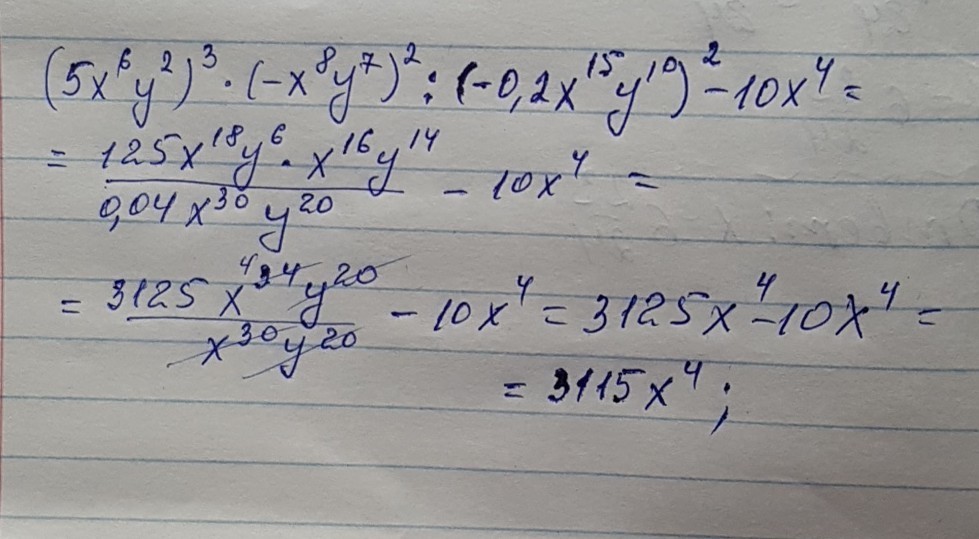 (5x⁶y²)³ · (-x⁸y⁷)² : (-0,2x¹⁵y¹⁰)² - 10x⁴ =
= 125x¹⁸y⁶ · x¹⁶y¹⁴ / 0,04x³⁰y²⁰ - 10x⁴ =
= 3125x⁴ ³⁴y²⁰ / x³⁰y²⁰ - 10x⁴ = 3125x⁴ - 10x⁴ =
= 3115x⁴;